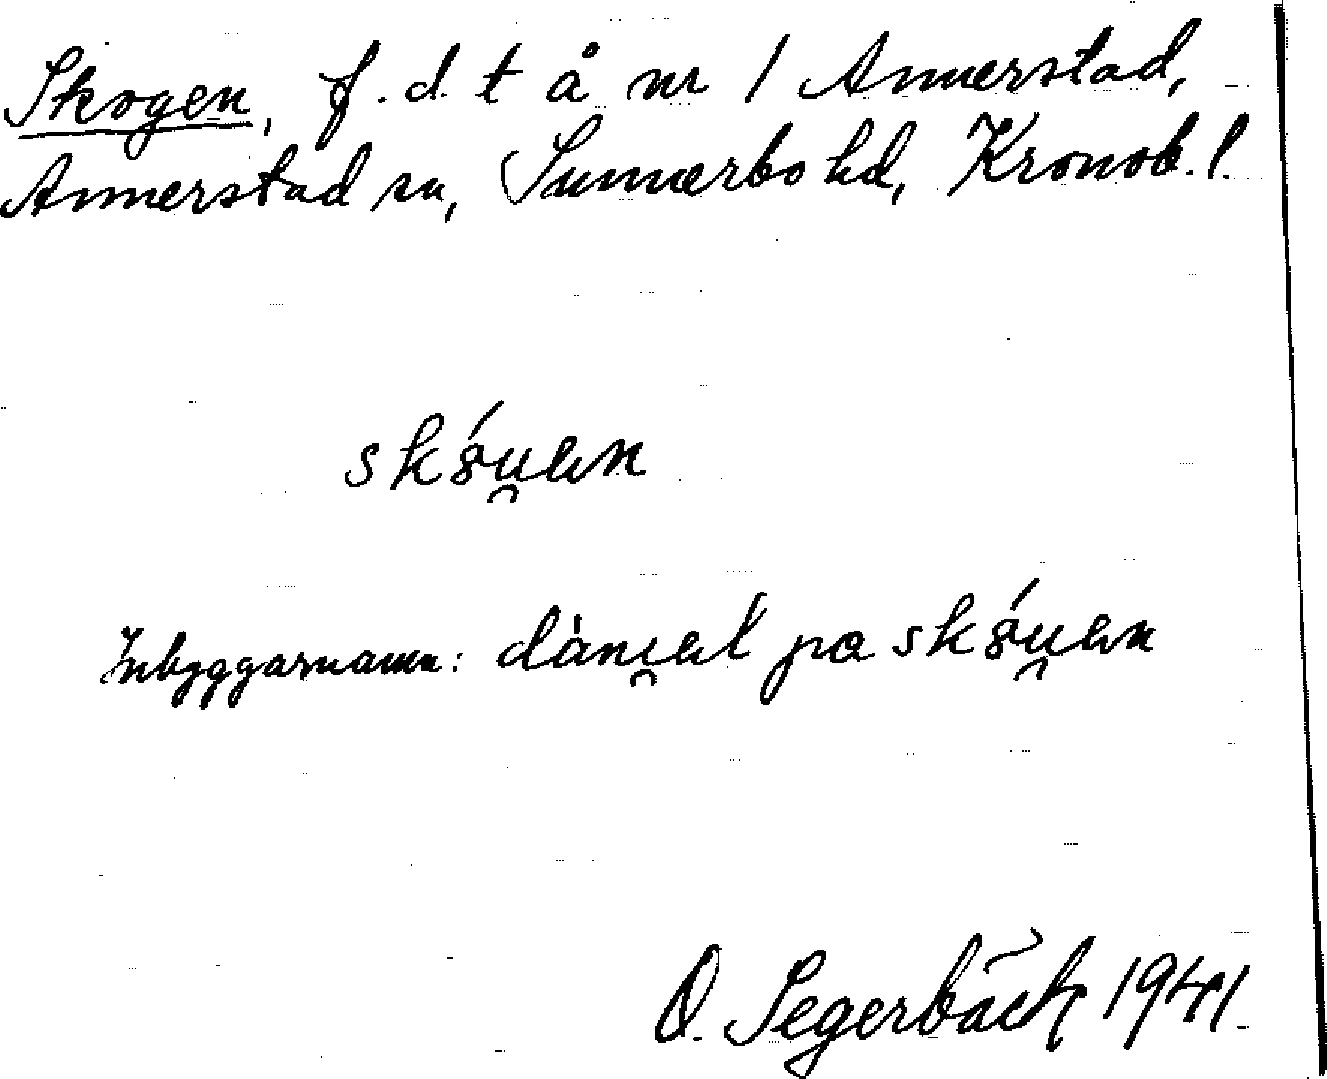 Skogen, f.d. t å nr 1 Annerstad,
Annerstad sn, Sunnerbo hd, Kronob. l.
skóu̯ən
Inbyggarnamn: dàni̯əl pa skóu̯ən
O. Segerbäck 1941.